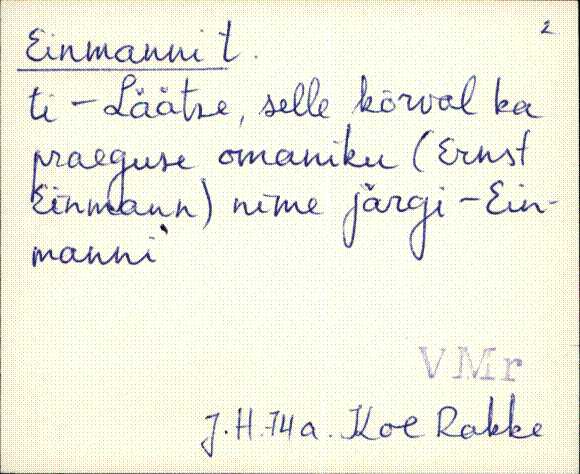 2
Einmanni t.
ti - Läätse, selle kõrval ka
praeguse omaniku (Ernst
Einmann) nime järgi - Ein-
manni
VMr
J.H. 74 a. Koe Rakke